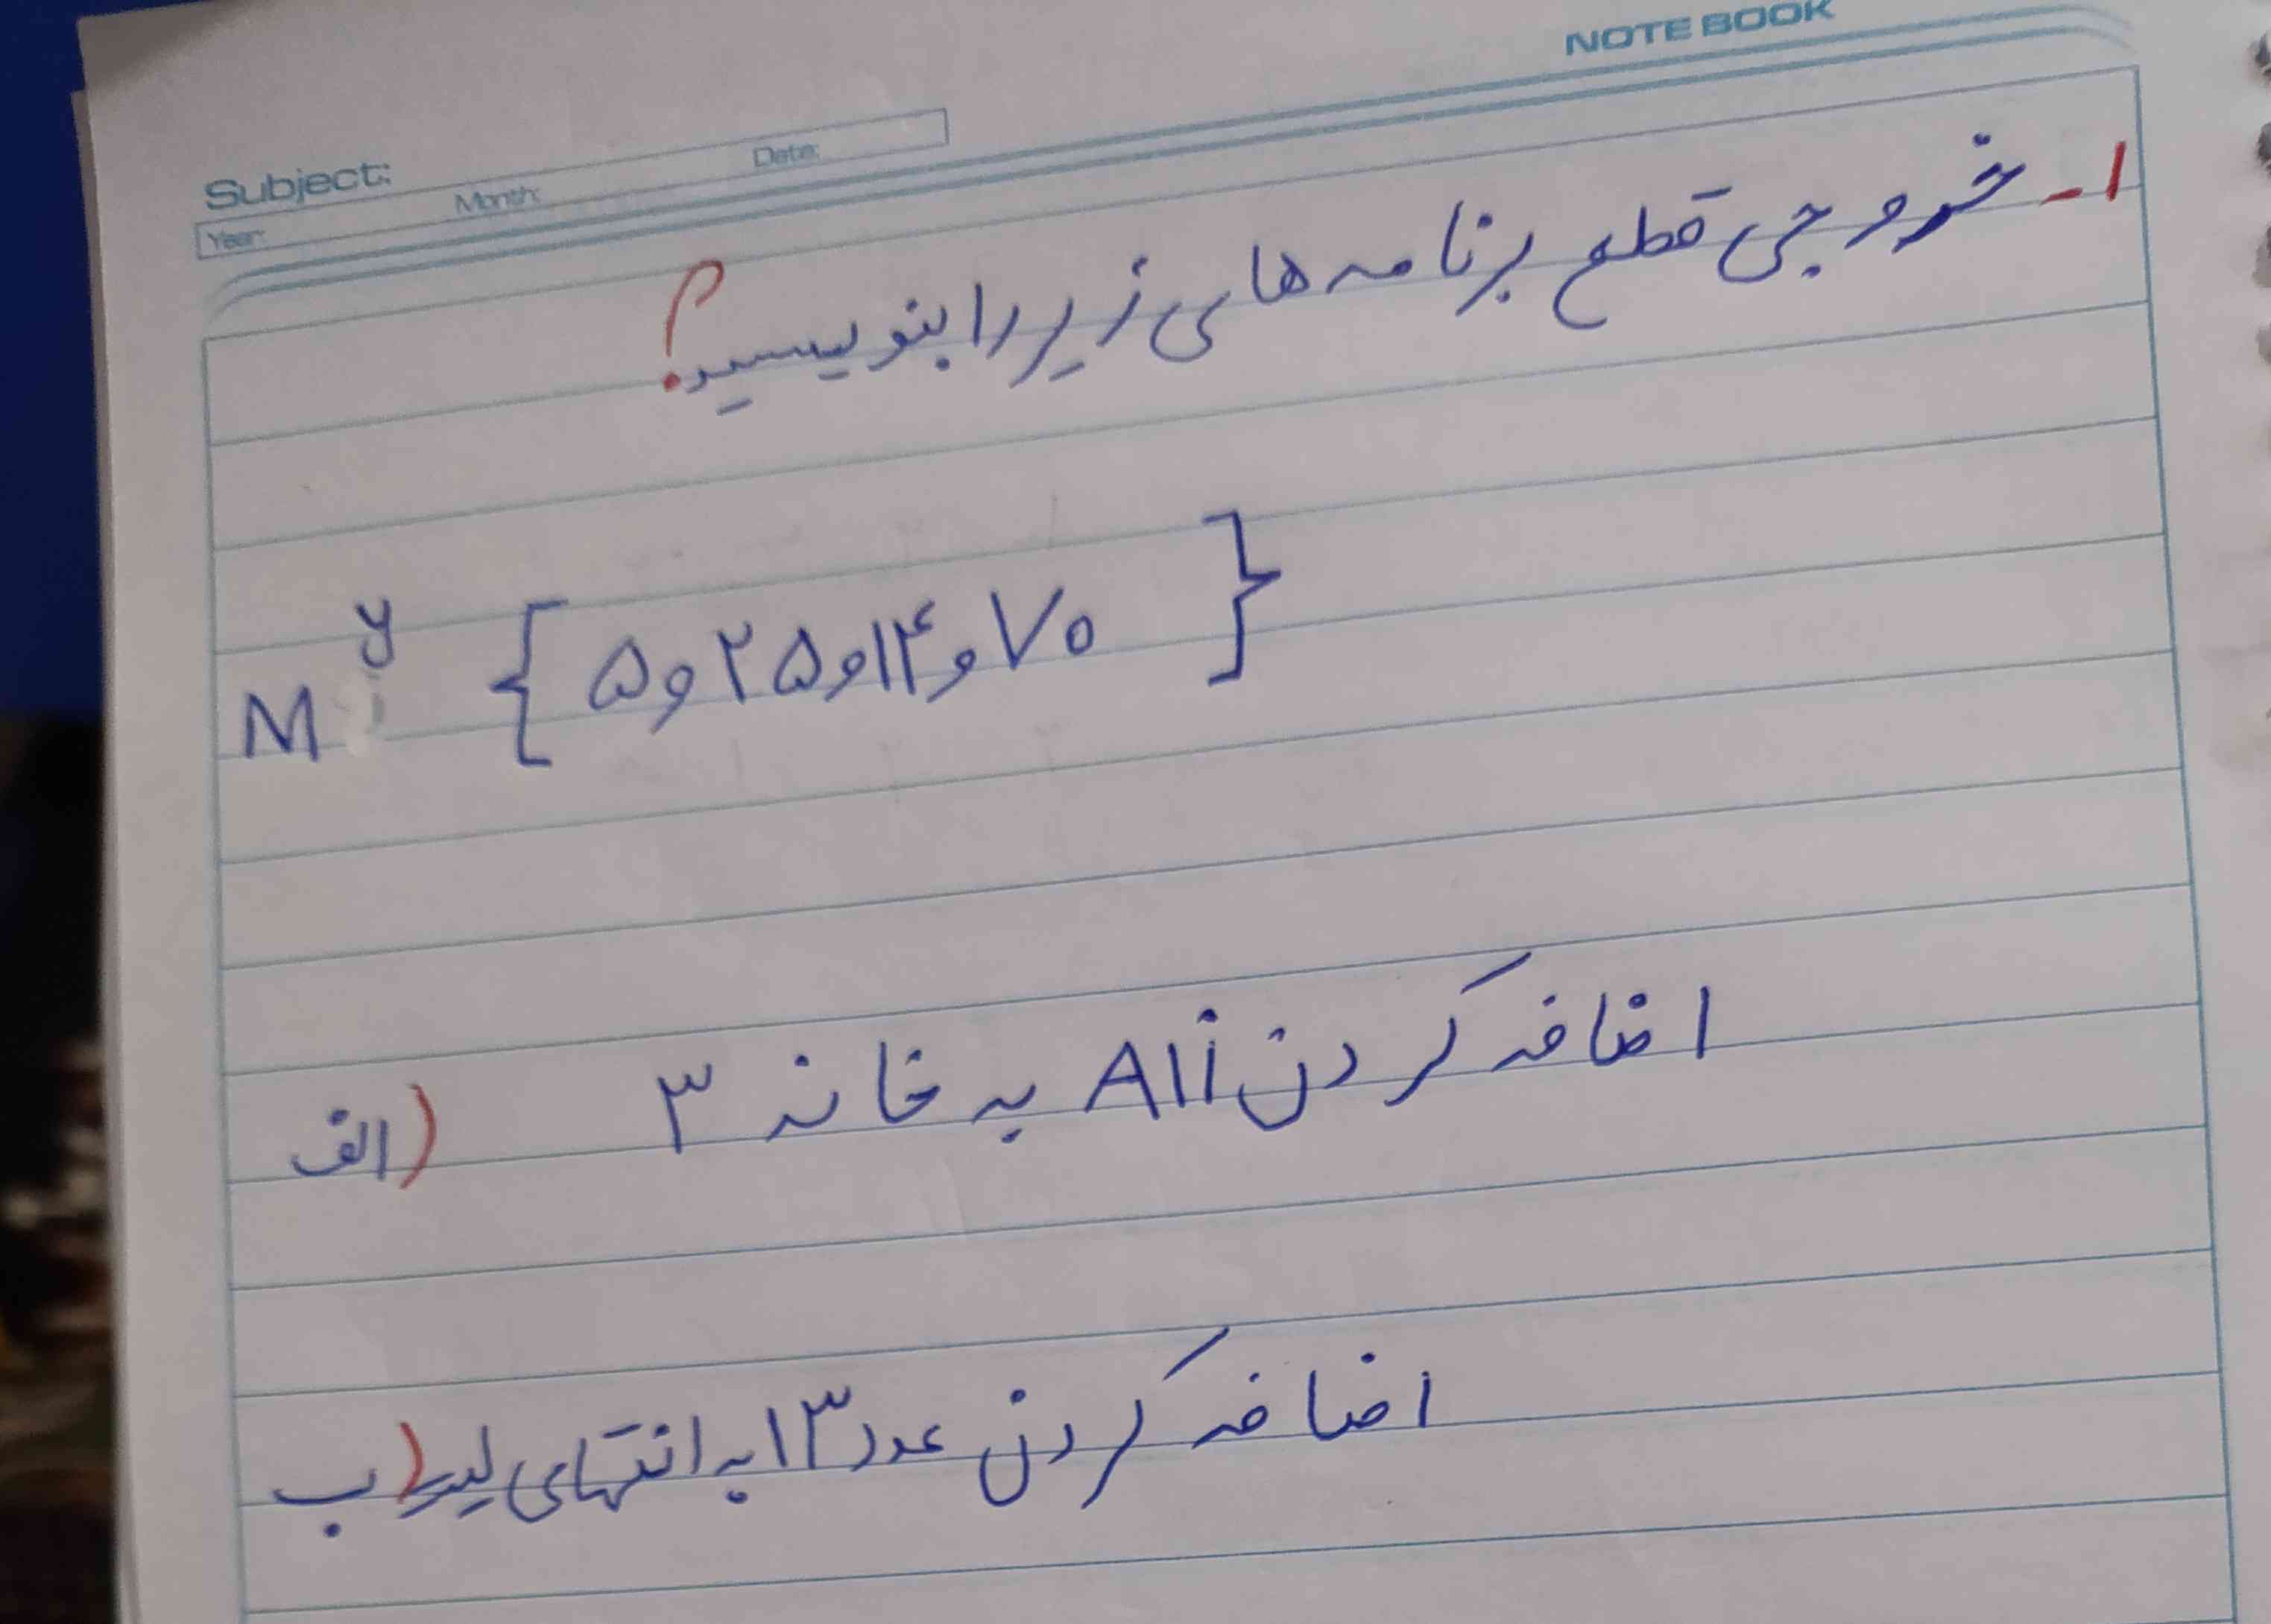 NOTE BOOK
Subject:
Year: Month: Date:
۱- خروجی قطع برنامه های زیر را بنویسید؟
My { ۵و۲۵و۱۴و۷۰ }
الف) اضافه کردن Ali به خانه ۳
ب) اضافه کردن عدد ۱۳ به انتهای